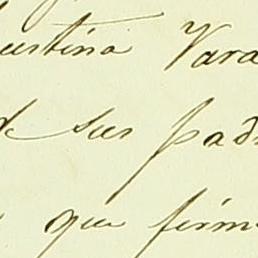 ustina Vara
de sus pad
que firm